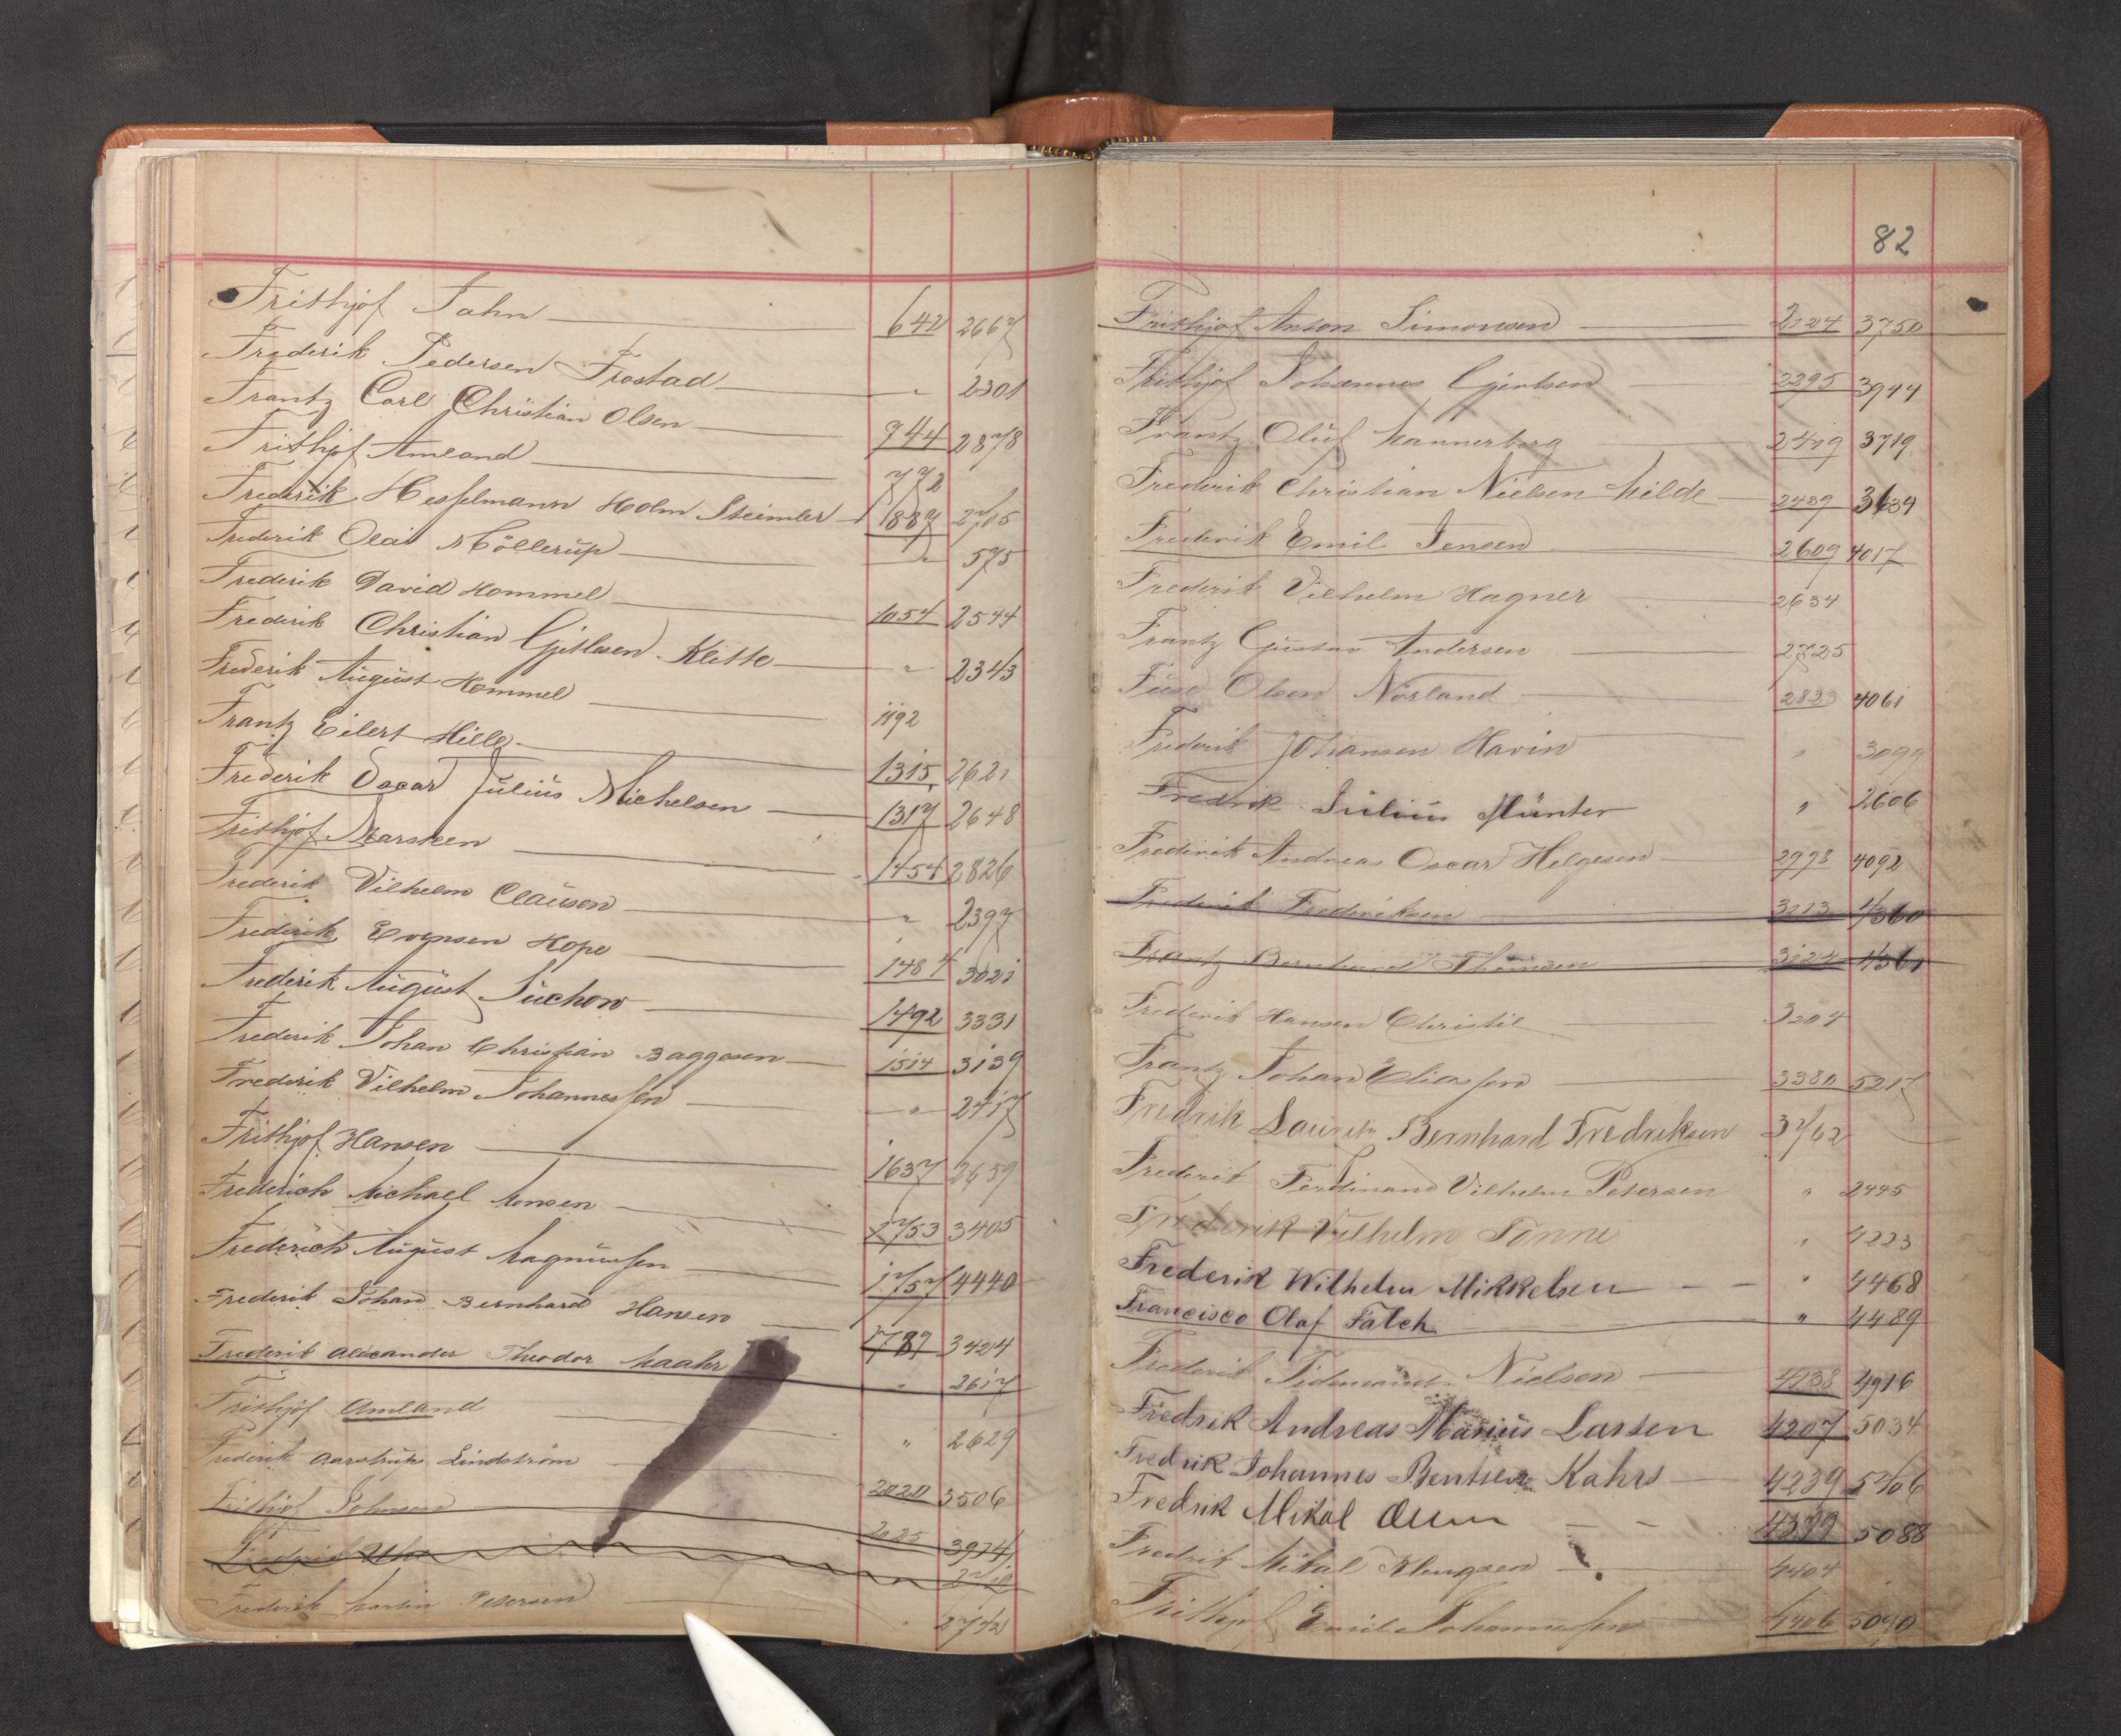 Frithjof Jahn 642 2667
Frederik Pedersen Frostad " 2301
Frantz Carl Christian Olsen 944 2878
Frithjof Amland 772
Frederik Hesselmann Holm Steimler 1887 2705
Frederik Olai Möllerup " 575
Frederik David Hommel 1054 2544
Frederik Christian Gjitlesen Klette " 2343
Frederik August Hommel 1192
Frantz Eilert Hille 1315 2621
Frederik Oscar Julius Michelsen 1317 2648
Frithjof Marsteen 1454 2826
Frederik Vilhelm Clausen " 2397
Frederik Evensen Hope 1484 3021
Frederik August Suchow 1492 3331
Frederik Johan Christian Baggesen 1514 3139
Frederik Vilhelm Johannessen " 2417
Frithjof Hansen 1637 2659
Frederich Michael Monsen 1753 3405
Frederich August Magnussen 1757 4440
Frederik Johan Bernhard Hansen 1789 3424
Frederik Alexander Theodor Maahr " 2617
Frithjof Amland " 2629
Frederik Aarstrup Lindström 2020 3506
Frithjof Johnsen 2025 3974
Frederik
Frederik Martin Petersen " 2742
82
Frithjof Anton Simonsen 2124 3750
Frithjof Johannes Gjertsen 2295 3944
Frantz Oluf Mannerberg 2419 3719
Frederik Christian Nielsen Milde 2439 3634
Frederik Emil Jensen 2609 4017
Frederik Vilhelm Hagner 2634
Frantz Gustav Andersen 2725
Olsen Norland 2823 4061
Frederik Johansen Havin " 3099
Fredrik Julius Münter " 2606
Frederik Andreas Oscar Helgesen 2998 4092
Frederik Frederiksen 3113 4360
Frantz Bernhard Thomsen 3124 4361
Frederik Hansen Christie 3204
Frantz Johan Eliassen 3380 5217
Fredrik Lauritz Bernhard Fredriksen 3762
Frederik Ferdinand Vilhelm Petersen " 2445
Frederik Vilhelm Tonne " 4223
Frederik Wilhelm Mikkelsen " 4468
Francisco Olaf Falch " 4489
Frederik Tidemand Nielsen 4138 4916
Fredrik Andreas Marius Larsen 4207 5034
Fredrik Johannes Bentsen Kahrs 4239 5406
Fredrik Mikal 4399 5088
Fredrik Mikal Klungsen 4404
Frithjof Emil Johannessen 4406 5090